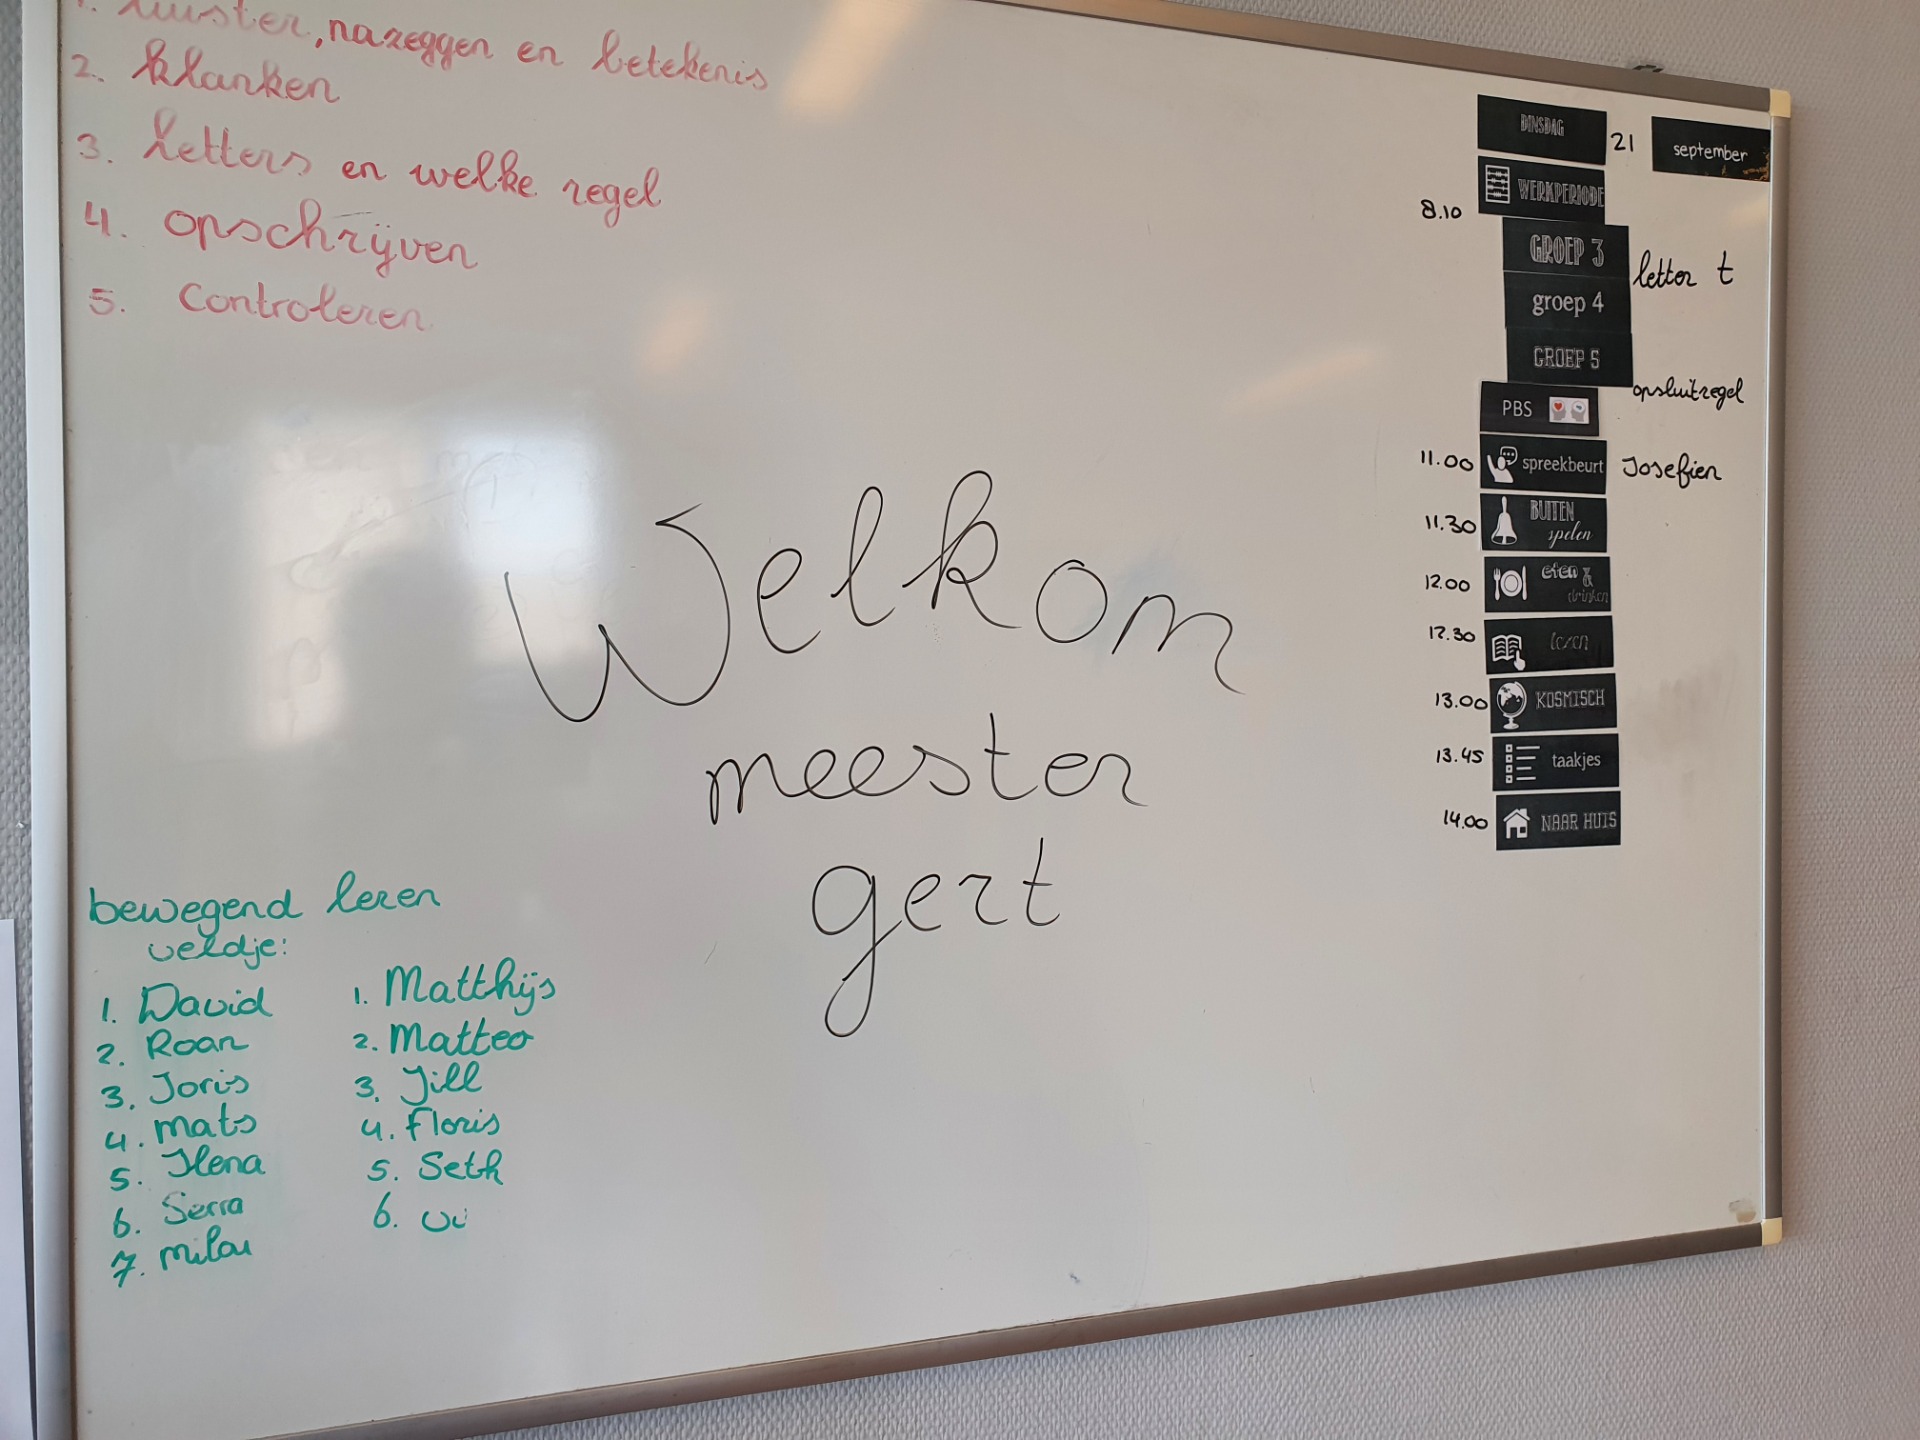 1. luister, nazeggen en betekenis
2. klanken
3. letters en welke regel
4. opschrijven
5. Controleren
Welkom
meester
gert
bewegend leren
veldje:
1. David
2. Roan
3. Joris
4. mats
5. Ilena
6. Serra
7. milou
1. Matthijs
2. Matteo
3. Jill
4. Floris
5. Seth
6.
DINSDAG 21 september
8.10 WERKPERIODE
GROEP 3 letter t
groep 4
GROEP 5 opsluitregel
PBS
11.00 spreekbeurt Josefien
11.30 BUITEN spelen
12.00 eten & drinken
12.30 lezen
13.00 KOSMISCH
13.45 taakjes
14.00 NAAR HUIS